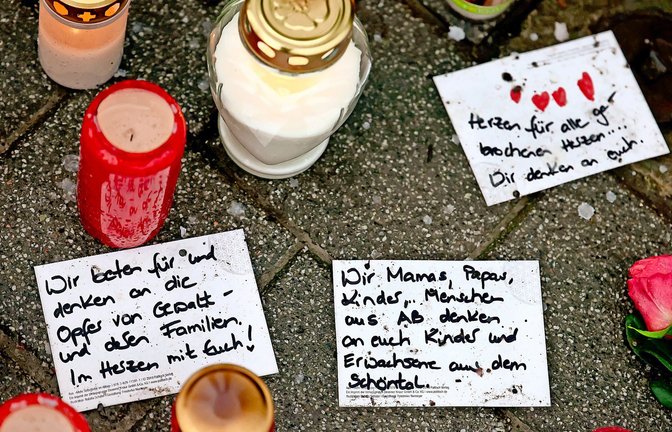 Herzen für alle ge-
brochenen Herzen....
Wir denken an euch.
Wir beten für und
denken an die
Opfer von Gewalt -
und deren Familien.
Im Herzen mit Euch!
Wir Mamas, Papas,
Kinder, Menschen
aus AB denken
an euch Kinder und
Erwachsene aus dem
Schöntal.